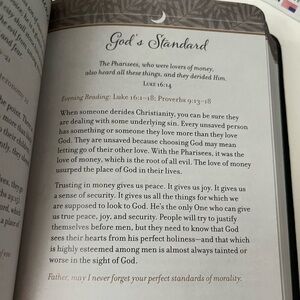 God's Standard
The Pharisees, who were lovers of money,
also heard all these things, and they derided Him.
LUKE 16:14
Evening Reading: Luke 16:1–18; Proverbs 9:13–18
When someone derides Christianity, you can be sure they
are dealing with some underlying sin. Every unsaved person
has something or someone they love more than they love
God. They are unsaved because choosing God may mean
letting go of their other love. With the Pharisees, it was the
love of money, which is the root of all evil. The love of money
usurped the place of God in their lives.
Trusting in money gives us peace. It gives us joy. It gives us
a sense of security. It gives us all the things for which we
are supposed to look to God. He's the only One who can give
us true peace, joy, and security. People will try to justify
themselves before men, but they need to know that God
sees their hearts from his perfect holiness—and that which
is highly esteemed among men is almost always tainted or
worse in the sight of God.
Father, may I never forget your perfect standards of morality.